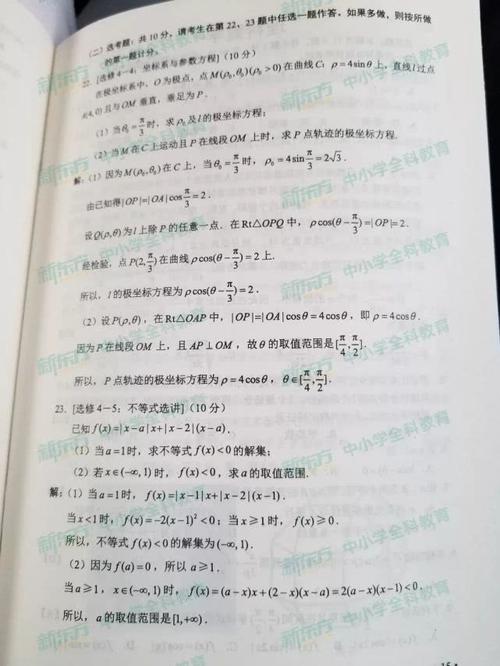 (二)选考题：共 10 分，请考生在第 22、23 题中任选一题作答。如果多做，则按所做
的第一题计分。
22. [选修 4—4：坐标系与参数方程] (10 分)
在极坐标系中，O为极点，点M(ρ₀,θ₀)(ρ₀>0)在曲线C：ρ=4sinθ上，直线l过点
A(4,0)且与OM垂直，垂足为P．
(1) 当θ₀=π/3时，求ρ₀及l的极坐标方程；
(2) 当M在C上运动且P在线段OM上时，求P点轨迹的极坐标方程．
解：(1) 因为M(ρ₀,θ₀)在C上，当θ₀=π/3时，ρ₀=4sinπ/3=2√3．
由已知得|OP|=|OA|cosπ/3=2．
设Q(ρ,θ)为l上除P的任意一点．在Rt△OPQ中，ρcos(θ-π/3)=|OP|=2．
经检验，点P(2,π/3)在曲线ρcos(θ-π/3)=2上．
所以，l的极坐标方程为ρcos(θ-π/3)=2．
(2) 设P(ρ,θ)，在Rt△OAP中，|OP|=|OA|cosθ=4cosθ，即ρ=4cosθ．
因为P在线段OM上，且AP⊥OM，故θ的取值范围是[π/4,π/2]．
所以，P点轨迹的极坐标方程为ρ=4cosθ，θ∈[π/4,π/2]．
23. [选修 4—5：不等式选讲] (10 分)
已知f(x)=|x-a|x+|x-2|(x-a)．
(1) 当a=1时，求不等式f(x)<0的解集；
(2) 若x∈(-∞,1)时，f(x)<0，求a的取值范围．
解：(1) 当a=1时，f(x)=|x-1|x+|x-2|(x-1)．
当x<1时，f(x)=-2(x-1)²<0；当x≥1时，f(x)≥0．
所以，不等式f(x)<0的解集为(-∞,1)．
(2) 因为f(a)=0，所以a≥1．
当a≥1，x∈(-∞,1)时，f(x)=(a-x)x+(2-x)(x-a)=2(a-x)(x-1)<0．
所以，a的取值范围是[1,+∞)．
新东方 中小学全科教育